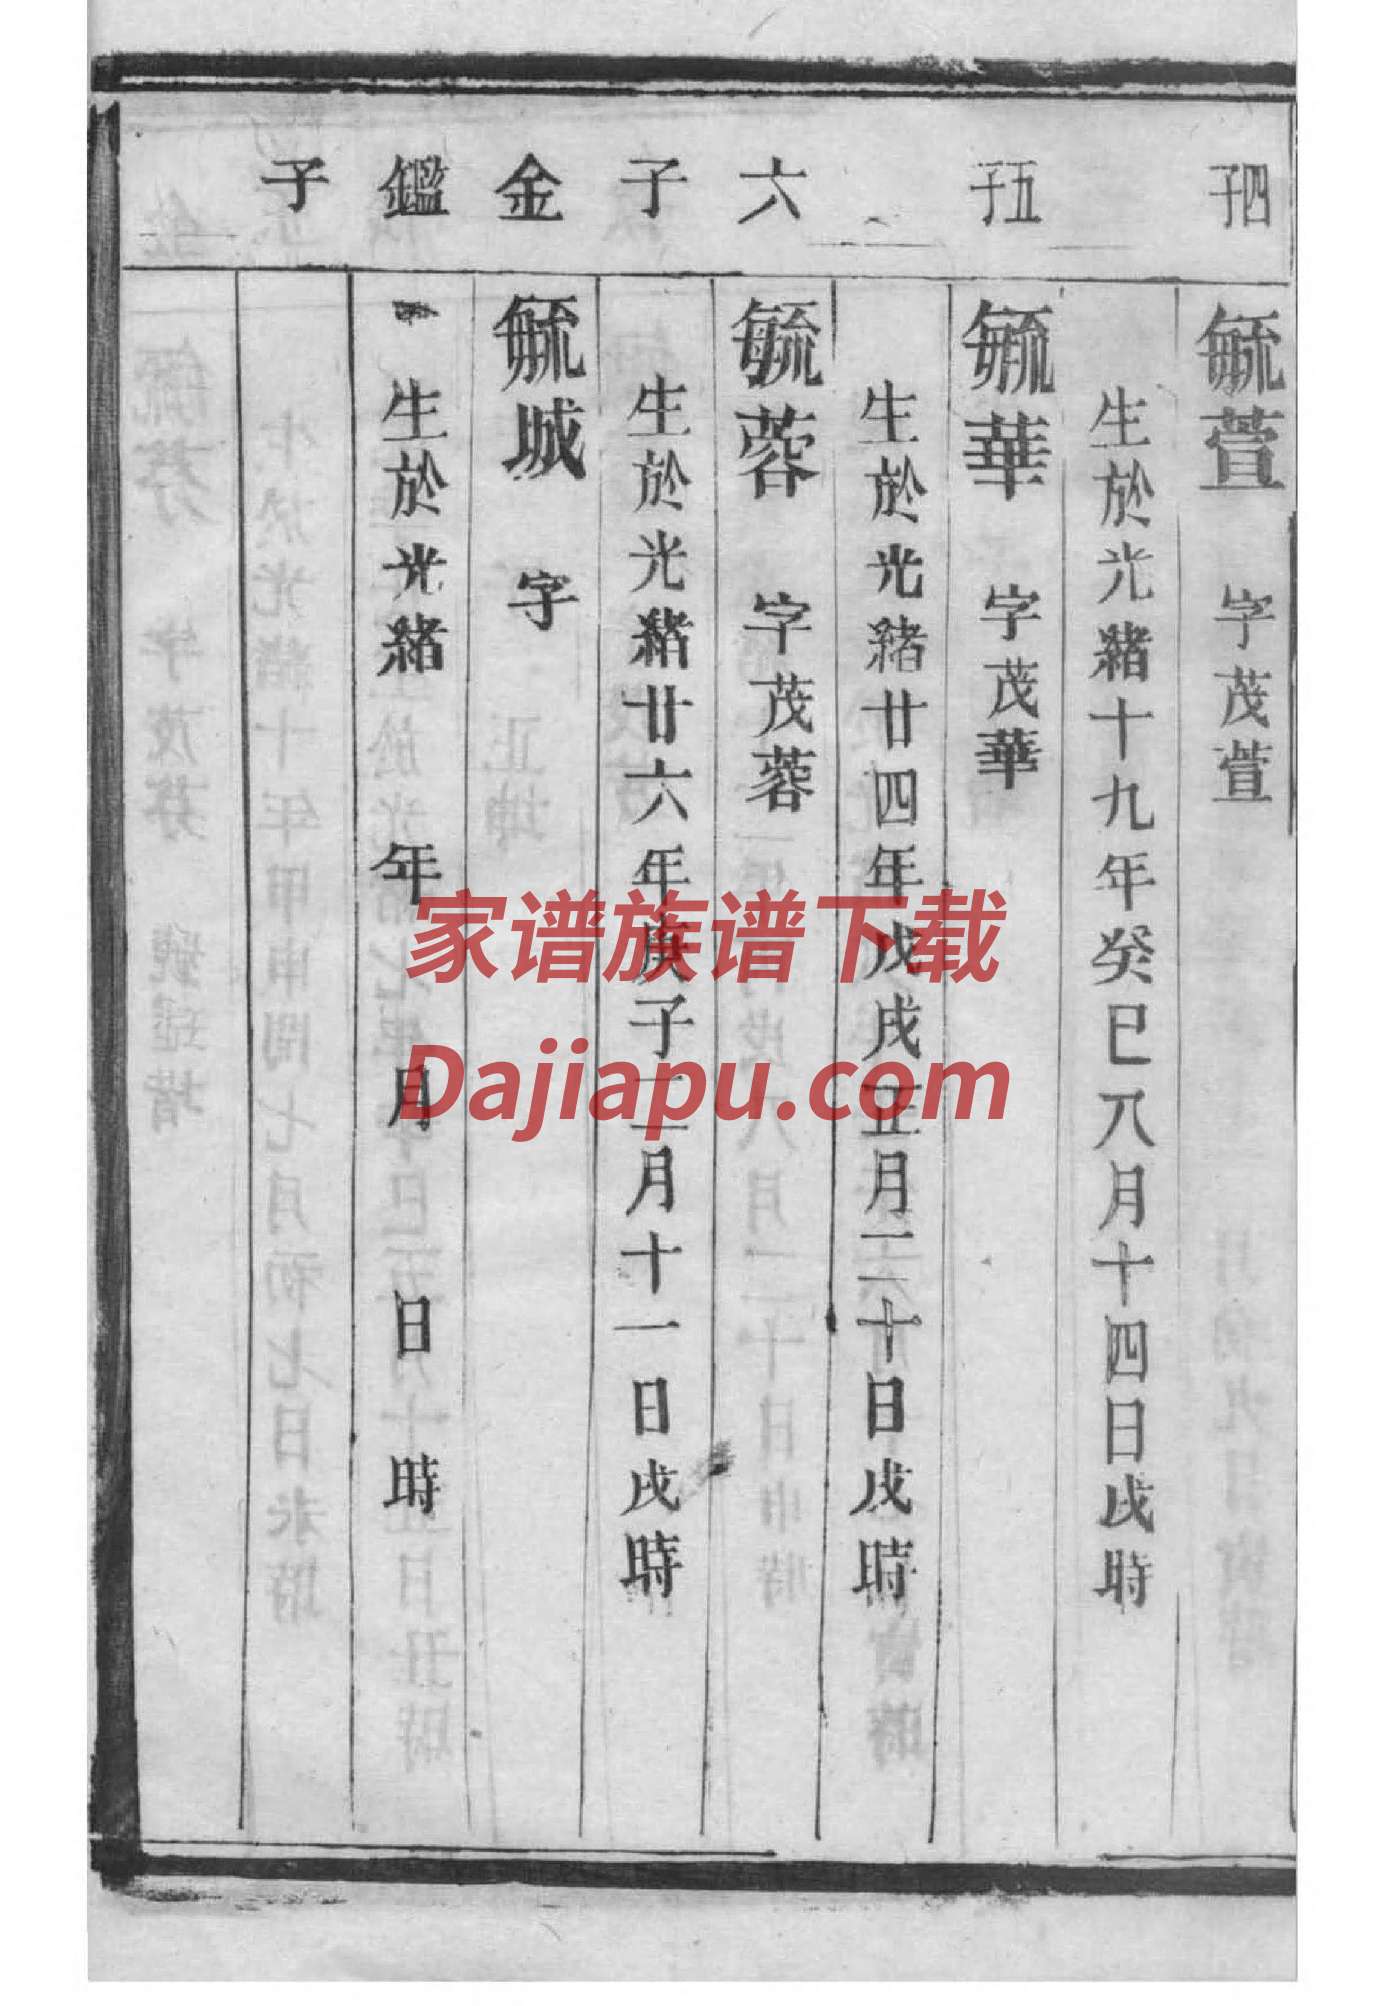 四子
毓萱 字茂萱
生於光緒十九年癸巳八月十四日戌時
五子
毓華 字茂華
生於光緒廿四年戊戌正月二十日戌時
六
毓蓉 字茂蓉
子
生於光緒廿六年庚子二月十一日戌時
金
毓城 字
鑑
生於光緒 年 月 日 時
子
家谱族谱下载
Dajiapu.com